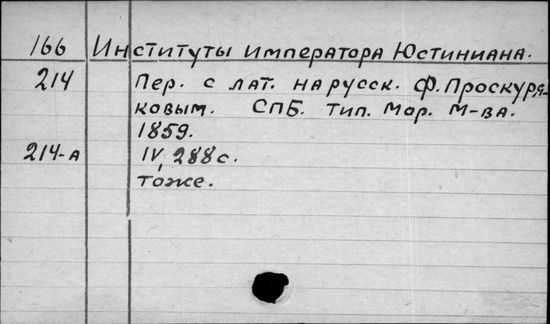 166 Институты императора Юстиниана.
214 Пер. с лат. на русск. Ф. Проскуря-
ковым. СПБ. Тип. Мор. М-ва.
1859.
214-а IV, 288 с.
тоже.